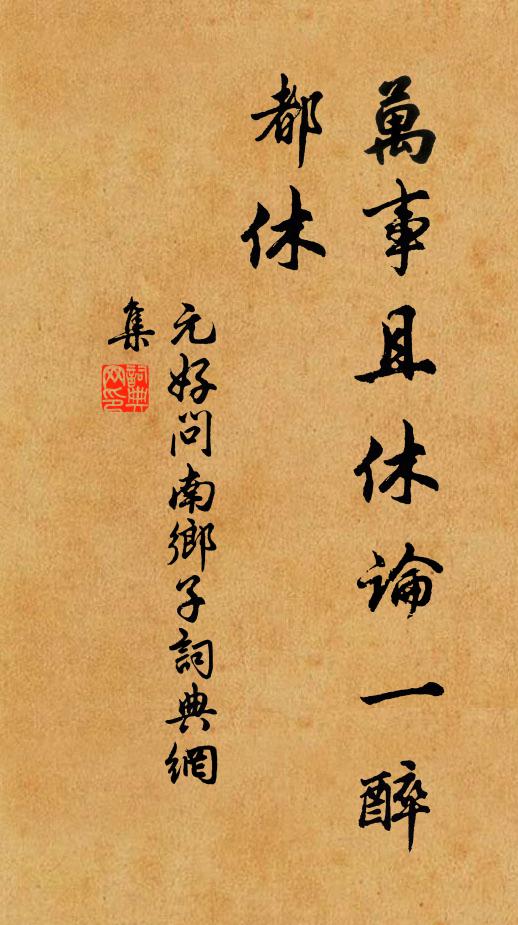 萬事且休論一醉
都休
元好問南鄉子詞典網
集
詞典
网印